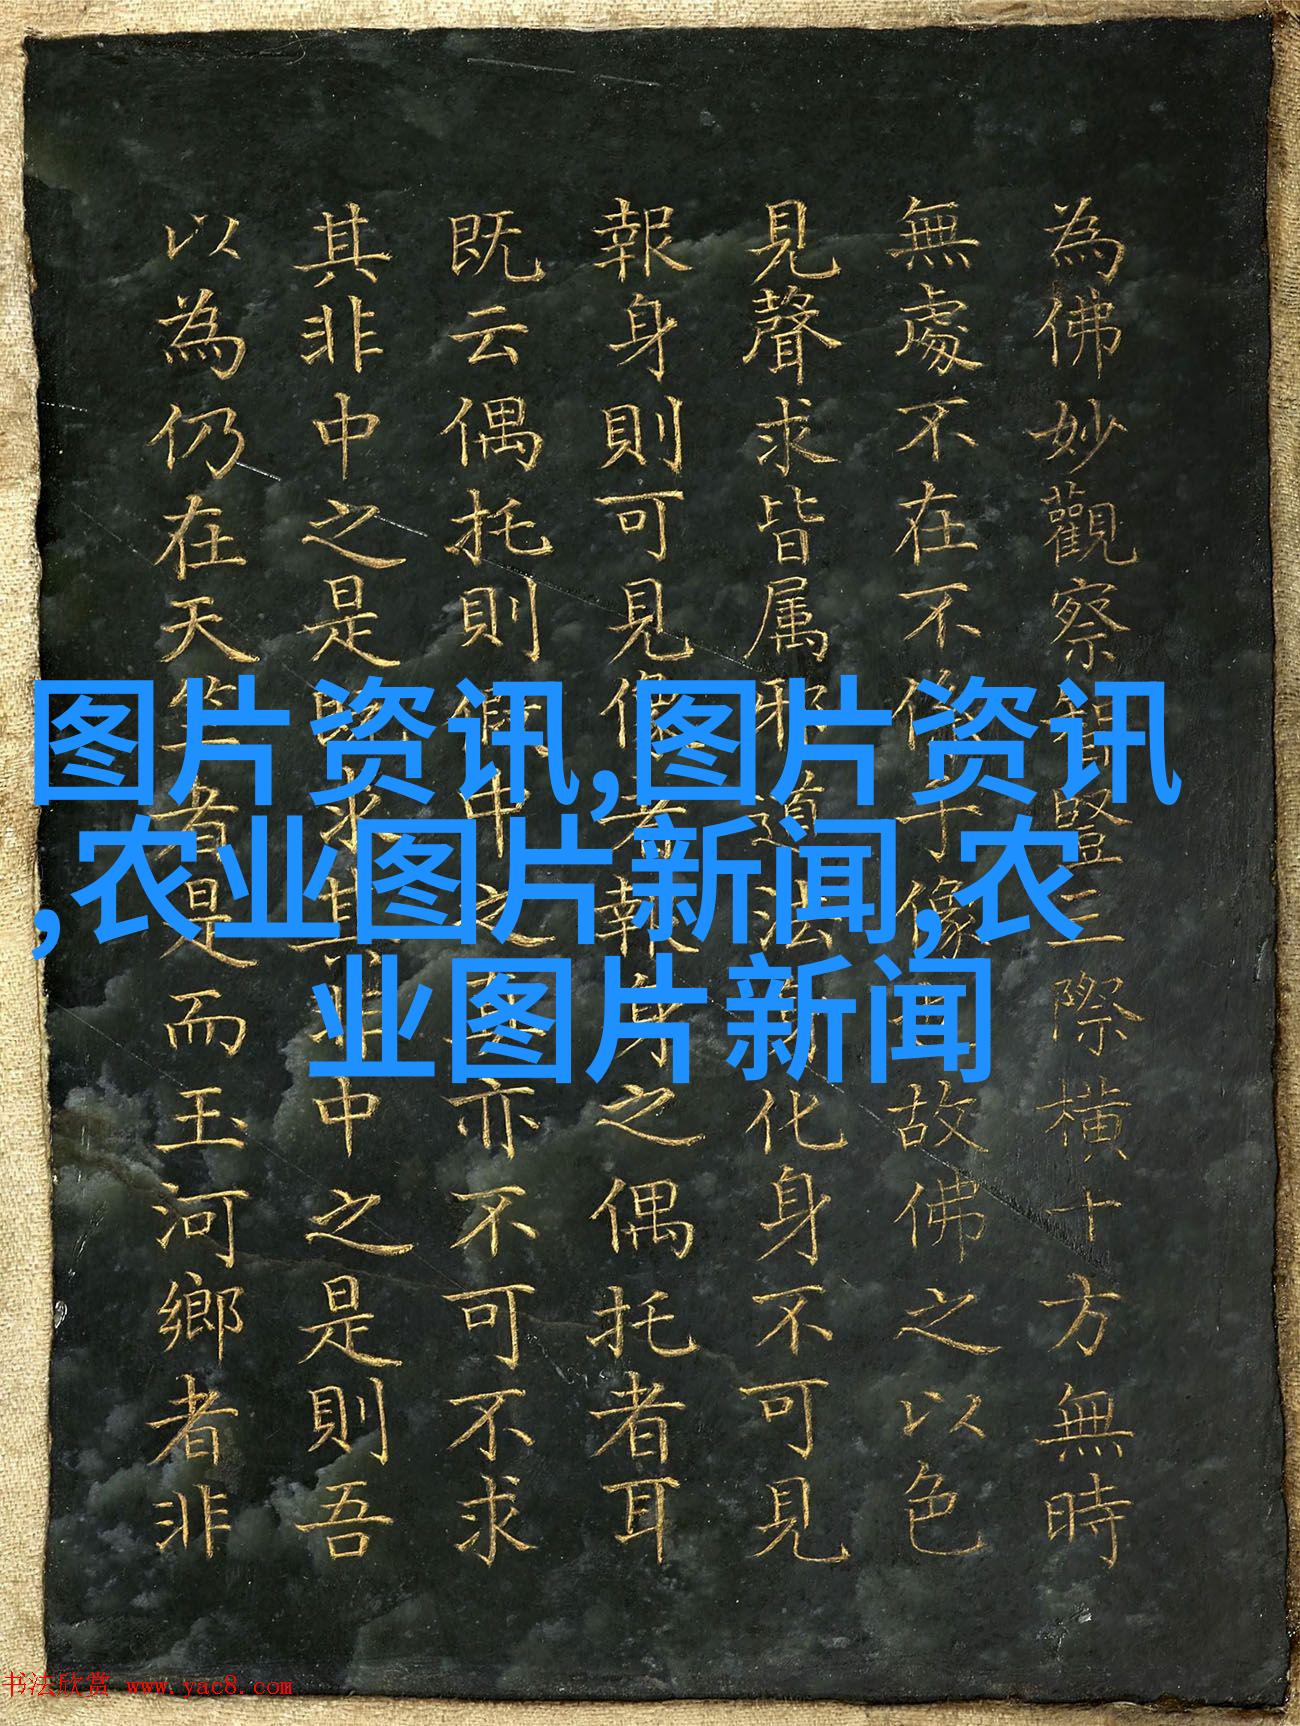 為佛妙觀察智豎三際橫十方無時
無處不在不于像故佛之以色
見聲求皆属邪道法化身不可見
報身則可見像者報身之偶托者耳
既云偶托則中之亦不可不求
其非中之是求其非中之是則吾
以為仍在天竺者是而玉河鄉者非
图片资讯,图片资讯
,农业图片新闻,农
业图片新闻
书法欣赏 www.yac8.com